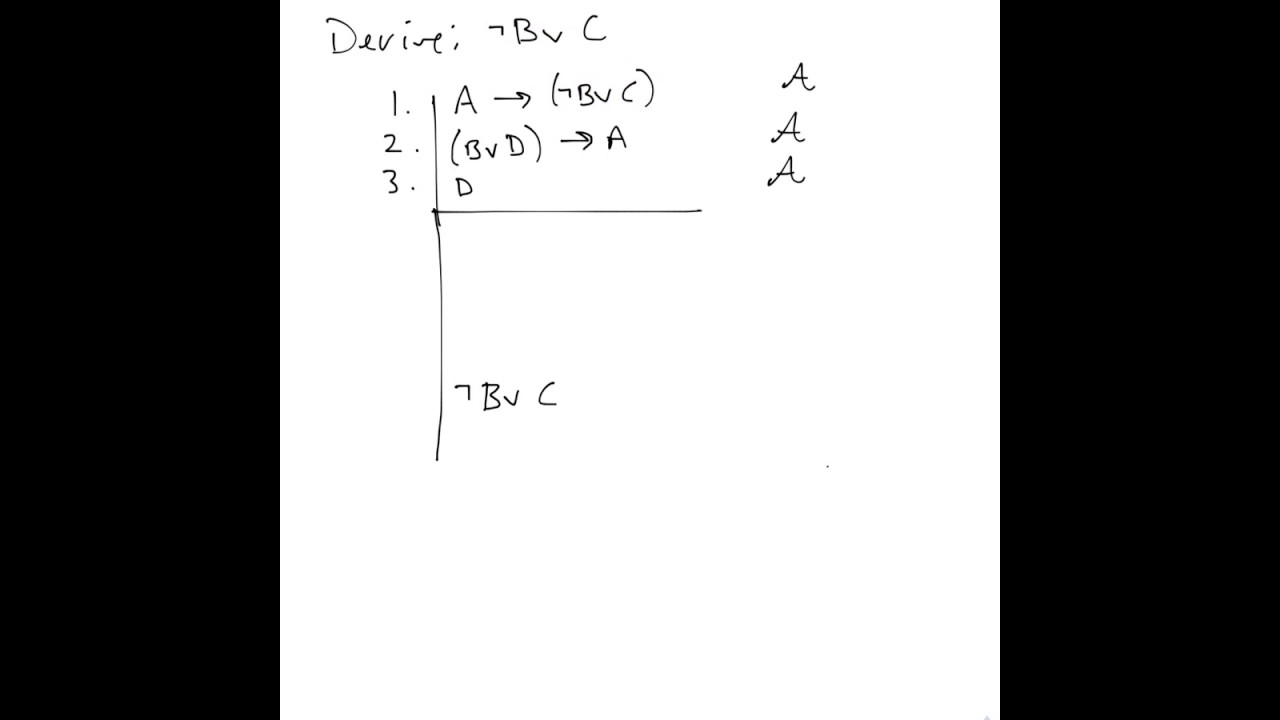 Derive: ¬B∨C
1. A → (¬B∨C) A
2. (B∨D) → A A
3. D A
¬B∨C